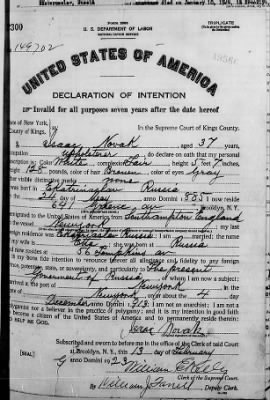 Form 2203
U. S. DEPARTMENT OF LABOR
NATURALIZATION SERVICE
TRIPLICATE
2300
No. 149702
UNITED STATES OF AMERICA
DECLARATION OF INTENTION
Invalid for all purposes seven years after the date hereof
State of New York,
County of Kings.
In the Supreme Court of Kings County.
Isaac Novak aged 37 years,
occupation Upholsterer do declare on oath that my personal
description is: Color White complexion Fair height 5 feet 7 inches,
weight pounds, color of hair Brown color of eyes Gray
other visible distinctive marks none
was born in Ekaterinoslav Russia
on the 24 day of May anno Domini 1885 I now reside
at av Brooklyn, N.Y.
emigrated to the United States of America from Southampton England
on the vessel Newyork
residence was Russia I am married; the name
wife is Ella she was born at Russia
and now resides at 56 Tompkins av
It is my bona fide intention to renounce forever all allegiance and fidelity to any foreign
prince, potentate, state, or sovereignty, and particularly to The present
Government of Russia of whom I am now a subject;
arrived at the port of Newyork in the
State of Newyork on or about the day
of December anno Domini 1913 I am not an anarchist; I am not a
polygamist nor a believer in the practice of polygamy; and it is my intention in good faith
to become a citizen of the United States of America and to permanently reside therein:
SO HELP ME GOD.
Isaac Novak
Subscribed and sworn to before me in the office of the Clerk of said Court
at Brooklyn, N.Y., this 13 day of February
anno Domini 1923
[SEAL]
William E Kelly
Clerk of the Supreme Court.
By William Deputy Clerk.